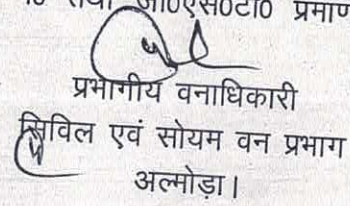 तथा जी०एस०टी० प्रमाण
प्रभागीय वनाधिकारी
सिविल एवं सोयम वन प्रभाग
अल्मोड़ा।